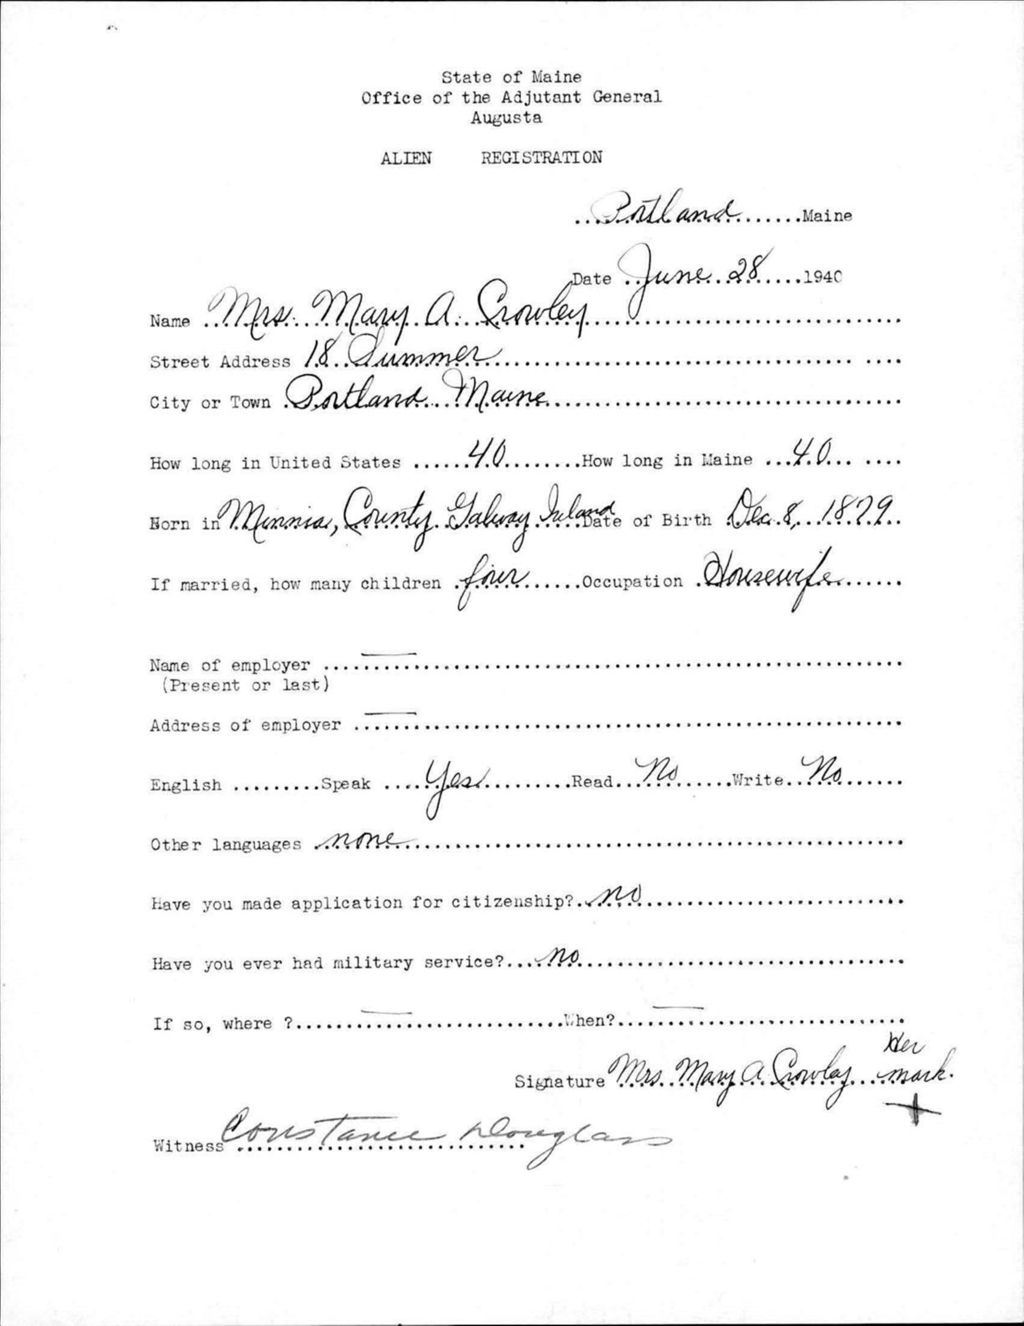 State of Maine
Office of the Adjutant General
Augusta
ALIEN REGISTRATION
Portland Maine
Date June 28 1940
Name Mrs. Mary A. Crowley
Street Address 18 Summer
City or Town Portland Maine
How long in United States 40 How long in Maine 40
Born in Minnia, County Galway Ireland Date of Birth Dec. 8, 1879
If married, how many children four Occupation Housewife
Name of employer
(Present or last)
Address of employer
English Speak Yes Read No Write No
Other languages none
Have you made application for citizenship? no
Have you ever had military service? no
If so, where ? When?
Her
Signature Mrs. Mary A. Crowley mark.
Witness Constance Douglass